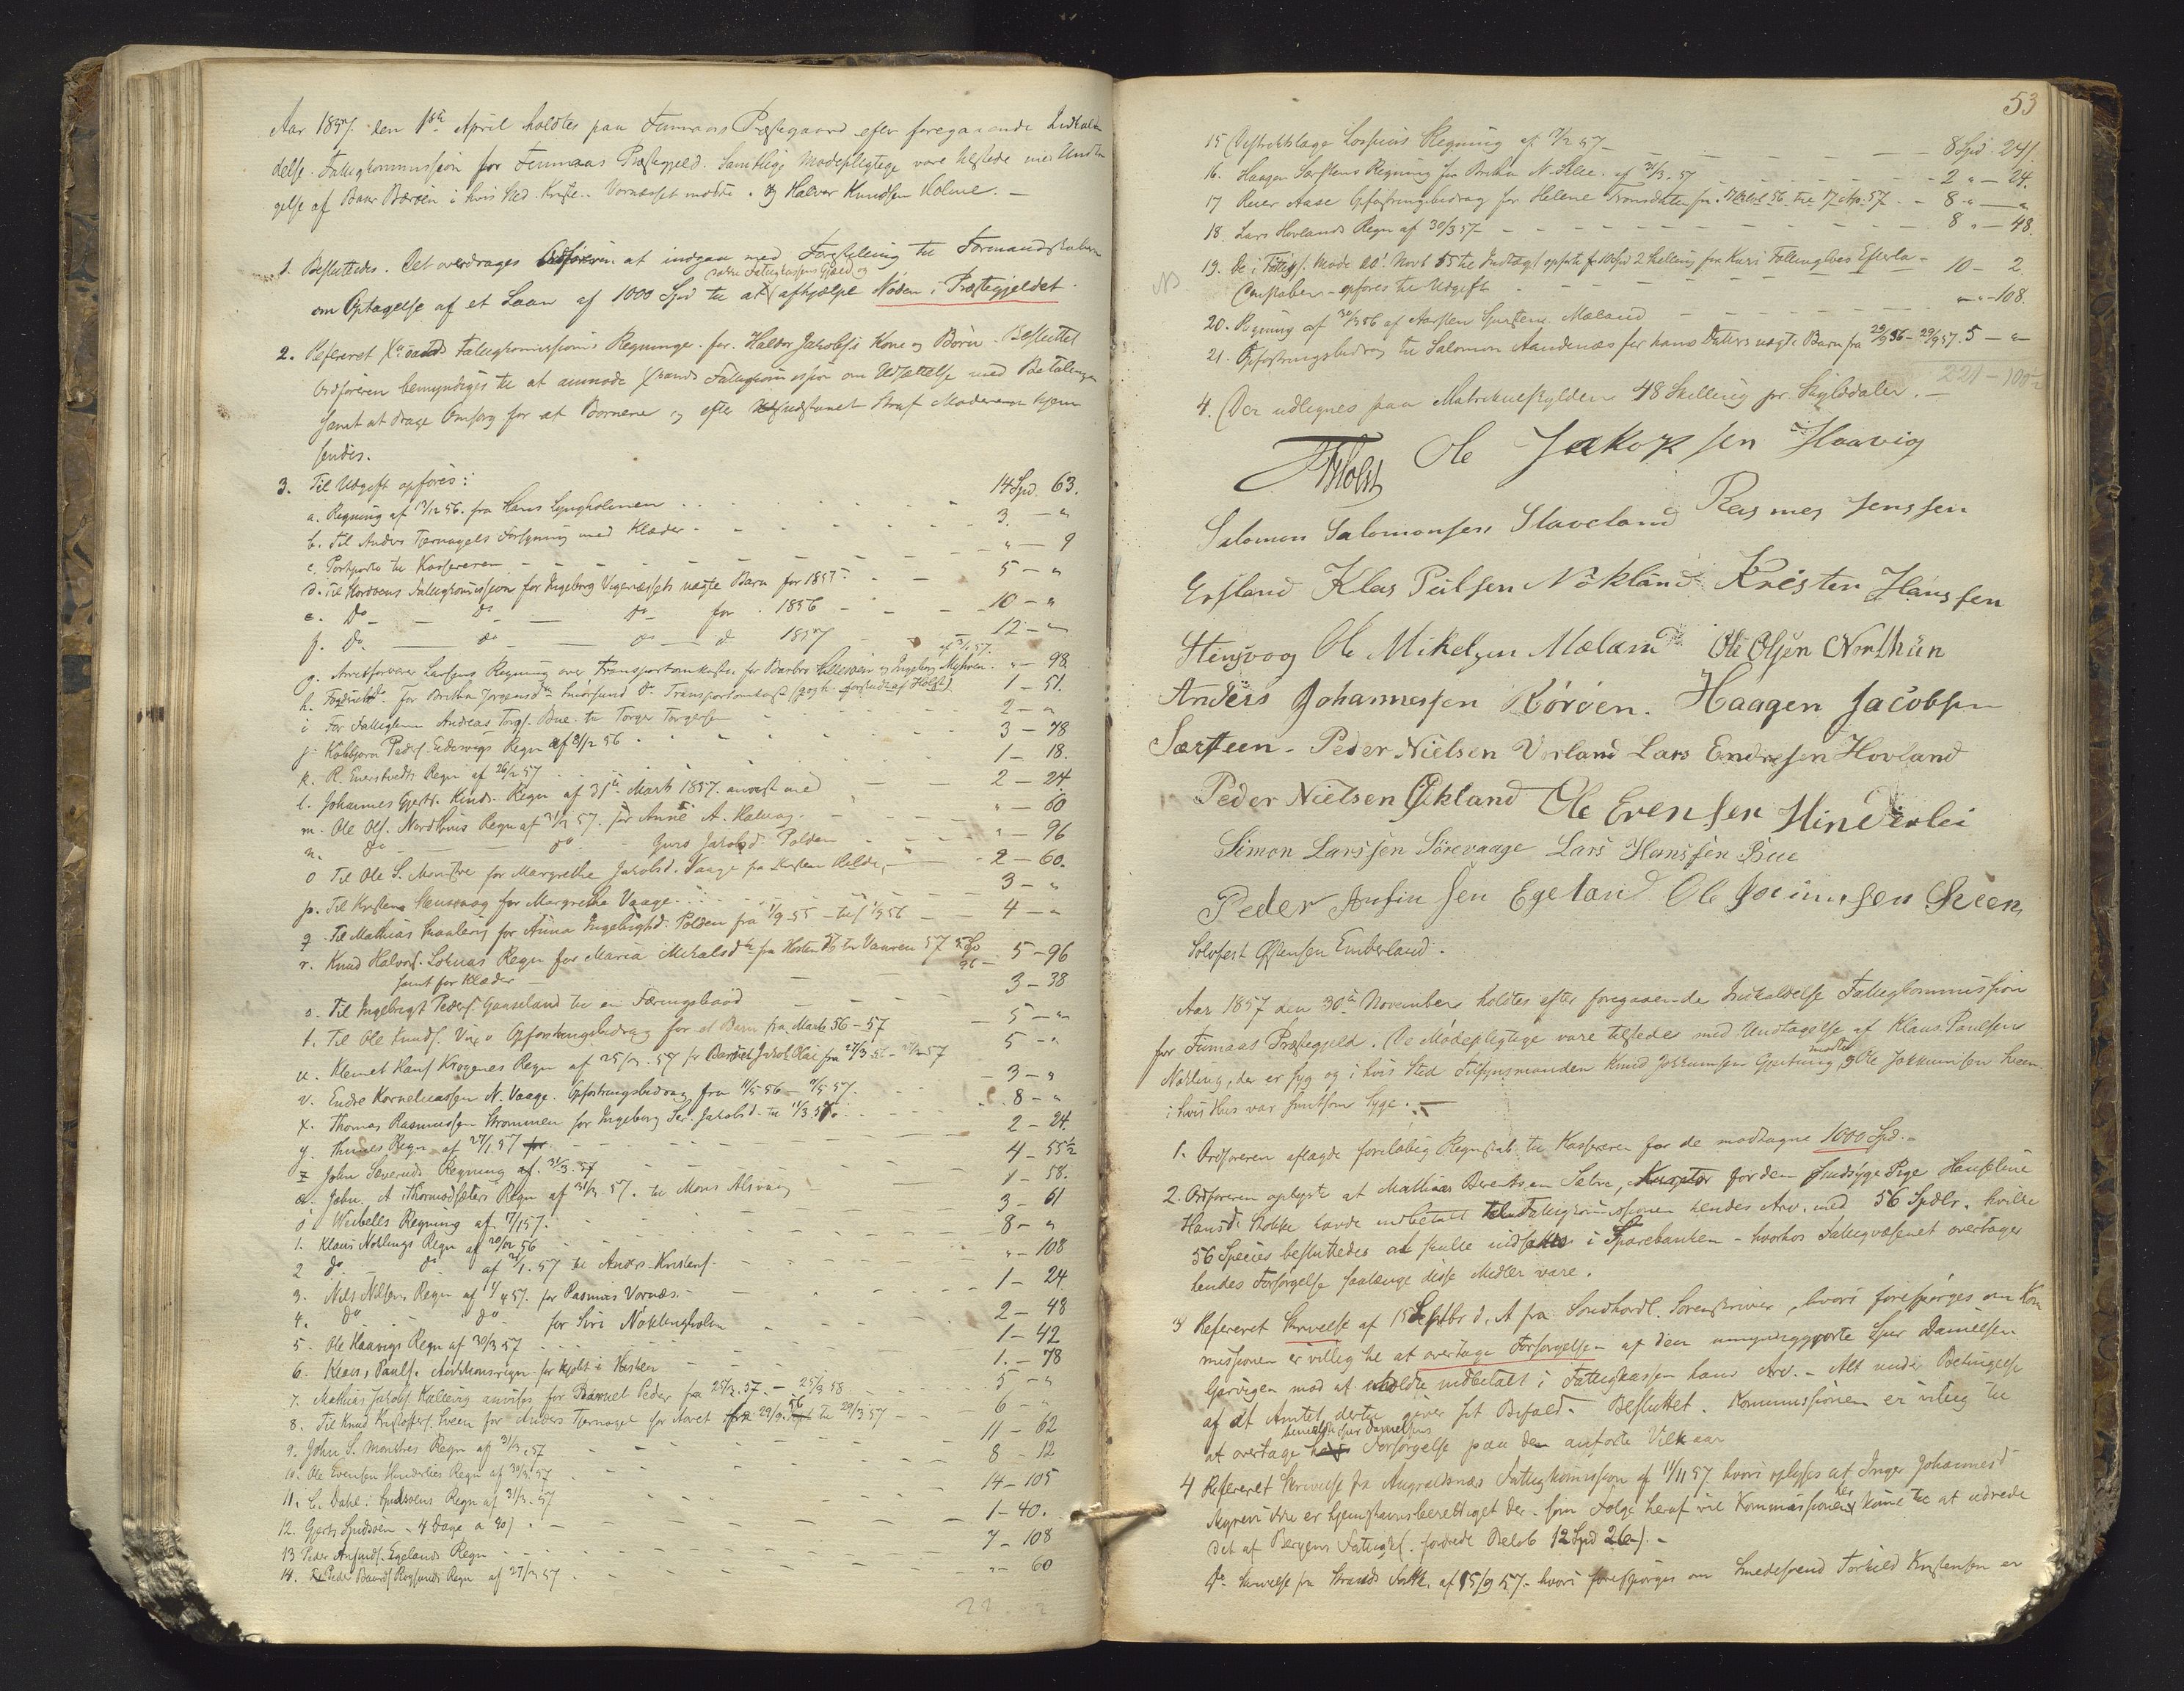 Aar 1857. den 1ste April holdtes paa Finnaas Præstegaard efter foregaaende Indkal-
delse Fattigkommission for Finnaas Præstegjeld. Samtlige Mødepligtige vare tilstede med Undta
gelse af Baar Børøen i hvis Sted Kristen Vornæsset mødte. og Halvor Knudsen Holme. –
1. Besluttedes. Det overdrages Ordføreren at indgaa med Forestilling til Formandskabet
dække Fattigkassens Gjæld og
om Optagelse af et Laan af 1000 Spd til at afhjælpe Nøden i Præstegjeldet.
2. Refereret Xsands Fattigkommissions Regninge for Haldor Jakobs's Kone og Børn. Besluttet
Ordføreren bemyndiges til at anmode Xsands Fattigkommission om Udsættelse med Betalingen
samt at drage Omsorg for at Børnene og efter udstanet Straf Moderen hjem
sendes.
3. Til Udgift opføres:
a. Regning af 13/12 56. fra Hans Lyngholmen 14 Spd. 63.
b. Til Anders Tjernagels Forsyning med Klæder 3. – "
c. Portporto til Kassereren " – 9
d. Til Mordvens Fattigkommission for Ingeborg Vigenæssets uægte Barn for 1855. 5 – "
e. Do – Do – Do for 1856 10 – "
f. Do. – do – do d. 1857 12 – "
g. Arrestforvarer Larsens Regning over Transportomkostn. for Barbro Lillevoien og Ingeborg Myhren. af 31/1 57. " – 98.
h. Fogdricht for Britha Jørgensdtr Transportomkost (godk. forskudt af Holst) 1 – 51.
i For Fattiglem Andreas Torgs. Bue til Torger Torgersen 2 – "
j. Kolbjørn Peders. Eidesvigs Regn af 31/12 56 3 – 78
k. R. Enerstvedts Regn af 26/2 57 1 – 18.
l. Johannes Gjerts. Kinds Regn af 31te Marts 1857. anvist med 2 – 24.
m. Ole Ols. Nordhuus Regn af 31/3 57. for Anne A. Halvag " – 60
n. do – do – Guro Jakobsd. Polden " – 96
o Til Ole S. Mønstre for Margrethe Jakobsd. Vaage 2 – 60.
p. Til Kristens Steensvaag for Margrethe Vaage 3 – "
q. Til Mathias Skaalevig for Anna Ingebrigtsd. Polden fra 1/9 55 – til 1/9 56 4 – "
r. Knud Halvors. Loknæs Regn for Maria Mikalsdtr fra Høsten 56 til Vaaren 57 5 Spd
samt for Klæder 96 – 5 – 96
s. Til Ingebrigt Peders. Gaaseland til en Færingsbaad 3 – 38
t. Til Ole Knuds. Vig Opfostringsbidrag for et Barn fra Marts 56 – 57 5 – "
u. Klemet Hans. Krogenes Regn af 25/3. 57 for Barnet Jakob Olai fra 27/3 56 – 27/3 57 5 – "
v. Endre Korneliussen N. Vaage. Opfostringsbidrag fra 11/5 56 – 11/5 57. 3 – "
x. Thomas Rasmussen Strommen for Ingeborg Jakobsd. til 11/3 57. 8 – "
y. Thunes Regn af 27/1 57 2 – 24.
z John Sæverud Regning af 31/3. 57 4 – 55½
æ. John. A. Thormodsæters Regn af 31/3. 57. til Mons Alsvaag 1 – 58.
ø Weibells Regning af 7/1 57. 3 – 61
1. Klaus Nøklings Regn af 20/12 56 8 – "
2 do. do af 31/1. 57 til Anders Kristens. " – 108
3. Nils Nilsens Regn af 1/4 57. for Rasmus Vornæs. 1 – 24
4. do do for Siri Nøklingholm 2 – 48
5. Ole Haavigs Regn af 30/3 57 1 – 42
6. Klaus Pauls. Auktionsregn. for kjøbt i Kisten 1. – 78
7. Mathias Jakobs. Kallevig anvises for Barnet Peder fra 25/3. 57. – 25/3 58 5 – "
8. Til Knud Kristoffers. Sveen for Anders Tjernagel for Aaret fra 29/9. 56 til 29/9 57 6 – "
9. John S. Mønstres Regn af 31/3. 57 11 – 62
10. Ole Evensen Hinderlies Regn af 30/3. 57 8 – 12
11. C. Dahl i Spidsøens Regn af 31/3. 57 14 – 105
12. Gjerts Spidsøen – 4 Dage a 40/ 1 – 40.
13 Peder Arnfinds. Egelands Regn 7 – 108
14. Peder Baards. Røgsunds Regn af 27/3 57 " – 60
53
15 Distriktslæge Lossius Regning af 7/2 57 8 Spd 24/.
16. Haagen Særstens Regning for Britha N. Slie. af 31/3. 57 2 " – 24.
17 Reier Aase Opfostringsbidrag for Helene Tronsdatter fra 17 April 56 til 17 Ap. 57 8 " – "
18. Lars Hovlands Regn af 30/3 57 8 " – 48.
19. De i Fattigk. Møde 20. Novb 55 til Indtægt opførte 10 Spd 2 Skilling fra Kari Føllinghoes Efterla-
denskaber – opføres til Udgift 10 – 2.
20. Regning af 30/3 56 af Karsten Gjertsen Mæland " – 108.
21. Opfostringsbidrag til Salomon Aandenæs for hans Datters uægte Barn fra 29/9 56 – 29/9 57. 5 – "
221 – 100½
4. Der udlignes paa Matrikulskylden 48 Skilling pr. Skylddaler. –
Holst Ole Jakopsen Haavig
Salomon Salomonsen Staveland Rasmes Jenssen
Ersland Klas Pålsen Nökland Kristen Hanssen
Stensvog Ole Mikelsen Mæland Ole Olsen Northun
Anders Johannessen Rörøen. Haagen Jacobsen
Særsteen – Peder Nielsen Vorland Lars Endresen Hovland
Peder Nielsen Økland Ole Evensen Hinderlei
Simon Larssen Sörevaage Lars Hanssen Bue
Peder Anfinsen Egeland Ole Jocumsen Sveen
Solvfest Østensen Emberland.
Aar 1857 den 30te November holdtes efter foregaaende Indkaldelse Fattigkommission
for Finnaas Præstegjeld. De Mødepligtige vare tilstede med Undtagelse af Klaus Paulsen
Nøkling, der er syg og i hvis Sted Tilsynsmanden Knud Jokkumsen Gjeitung mødte, og Ole Jokkumsen Sveen
i hvis Hus var smitsom Syge. –
1. Ordføreren aflagde foreløbig Regnskab til Kassereren for de modtagne 1000 Spd. –
2. Ordføreren oplyste at Mathias Berentsen Sætre, Kurator for den sindssyge Pige Hanseline
Hansdtr Stokke havde indbetalt til Fattigkommissionen hendes Arv. med 56 Spdlr. hvilke
56 Species besluttedes at skulle indsættes i Sparebanken – hvorhos Fattigvæsenet overtager
hendes Forsørgelse saalænge disse Midler vare.
3 Refereret Skrivelse af 15 Septbr d. A. fra Søndhordl. Sorenskriver, hvori forespørges om Kom
missionen er villig til at overtage Forsørgelsen af den umyndiggjorte Sjur Danielsen
Gjervigen mod at erholde indbetalt i Fattigkassen hans Arv. – Alt under Betingelse
af at Amtet dertil giver sit Bifald. Besluttet. Kommissionen er villig til
benævnte Sjur Danielsens
at overtage Forsørgelse paa de anførte Vilkaar
4 Refereret Skrivelse fra Augvaldsnæs Fattigkommission af 11/11 57 hvori oplyses at Inger Johannesd
Myren ikke er hjemstavnsberettiget der. Som Følge heraf vil Kommissionen her komme til at udrede
det af Bergens Fattigk. fordrede Beløb 12 Spd 26/. –
do Skrivelse fra Strands Fattk. af 15/9 57. hvori forespørges om Smedesvend Torkild Kristensen er